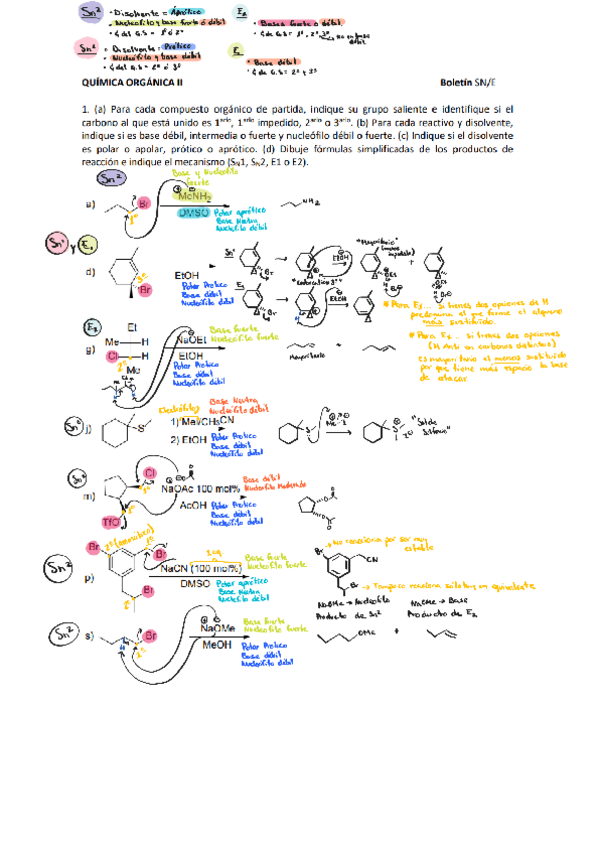 Sn² · Disolvente = Aprótico
· Nucleófilo y base fuerte ó débil
· C del G.S = 1º ó 2º
E₂
· Bases fuerte o débil
Sn¹ · Disolvente = Prótico
· Nucleófilo y base débil
· C del G.S = 2º ó 3º
E₁
· Base débil
· C de G.S = 2º y 3º
QUÍMICA ORGÁNICA II Boletín SN/E
1. (a) Para cada compuesto orgánico de partida, indique su grupo saliente e identifique si el
carbono al que está unido es 1ario, 1ario impedido, 2ario o 3ario. (b) Para cada reactivo y disolvente,
indique si es base débil, intermedia o fuerte y nucleófilo débil o fuerte. (c) Indique si el disolvente
es polar o apolar, prótico o aprótico. (d) Dibuje fórmulas simplificadas de los productos de
reacción e indique el mecanismo (SN1, SN2, E1 o E2).
Sn²
Base y Nucleófilo
fuerte
a) Br 1º MeNH₂
DMSO Polar aprótico
Base Neutra
Nucleófilo débil
NH₂
Sn¹ y E₁
d) Br EtOH
Polar Prótico
Base débil
Nucleófilo débil
Sn¹ Br EtOH "Mayoritario" +
E₁ Br EtOH
* Para E₁... Si tienes dos opciones de H
predomina el que forme el alqueno
más sustituido.
E₂
g) Et
Me H
Cl H
2º Me
NaOEt Base fuerte
Nucleófilo fuerte
EtOH
Polar Prótico
Base débil
Nucleófilo débil
Mayoritario +
* Para E₂... si tienes dos opciones
(H Anti en carbonos distintos)
es mayoritario el menos sustituido
por que tiene más espacio la base
de atacar
Sn² j) S
(Electrófilo) Base Neutra
Nucleófilo débil
1) MeI/CH₃CN
2) EtOH Polar Prótico
Base débil
Nucleófilo débil
Me-I
"Sal de
Sulfonio"
Sn²
m) Cl 1º
TfO
NaOAc 100 mol% Base débil
Nucleófilo Moderado
AcOH Polar Prótico
Base débil
Nucleófilo débil
Sn² p) Br Br Br
1eq
NaCN (100 mol%) Base fuerte
Nucleófilo fuerte
DMSO Polar aprótico
Base Neutra
Nucleófilo débil
Br → No reacciona por ser muy
estable
CN
Br → Tampoco reacciona sólo hay un equivalente
Sn² s) Br 1º
NaOMe Base fuerte
Nucleófilo fuerte
MeOH Polar Prótico
Base débil
Nucleófilo débil
NaOMe → Nucleófilo NaOMe → Base
Producto de Sn² Producto de E₂
OMe +